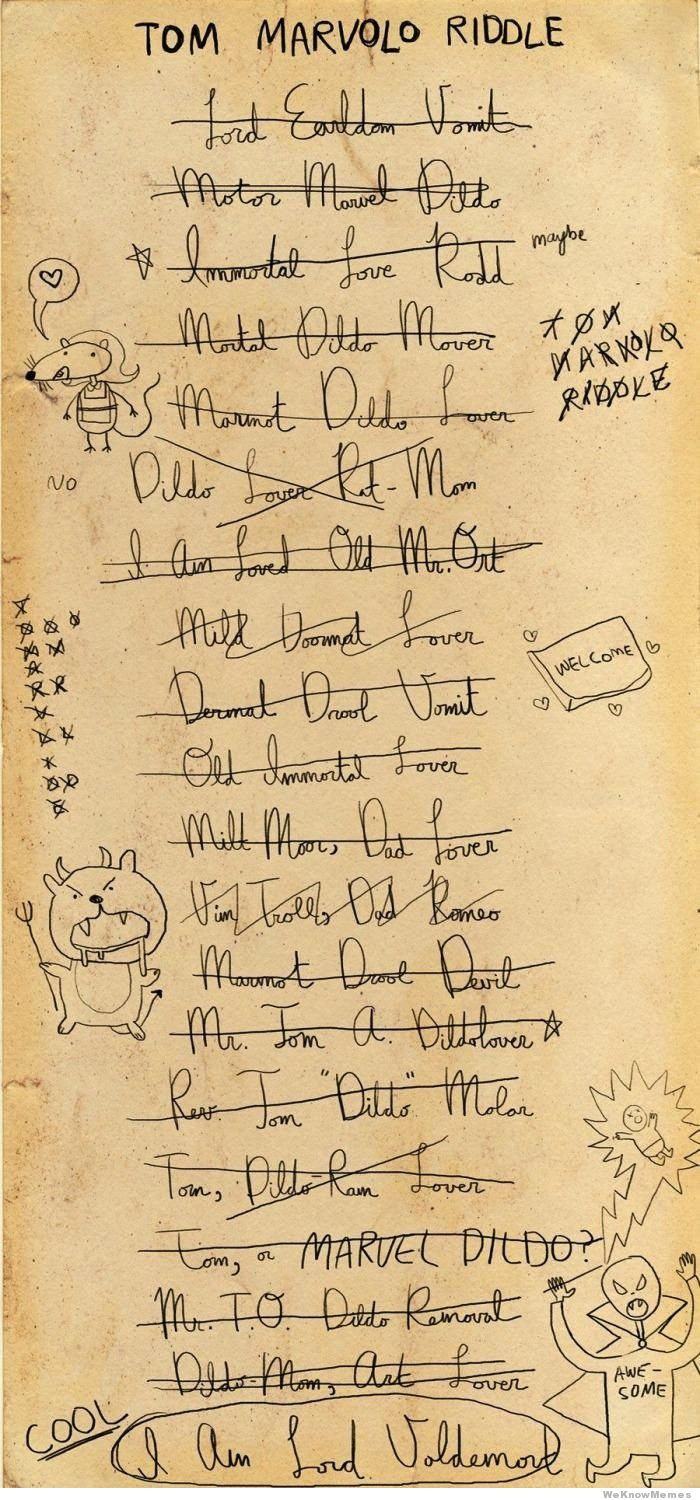 TOM MARVOLO RIDDLE
Lord Earldom Vomit
Motor Marvel Dildo
Immortal Love Rodd
maybe
Mortal Dildo Mover
TOM
MARVOLO
RIDDLE
Marmot Dildo Lover
NO
Dildo Lover Rat-Mom
I Am Loved Old Mr. Ort
Mild Doormat Lover
WELCOME
Dermal Drool Vomit
Old Immortal Lover
Milt Moor, Dad Lover
Vim Troll, Dad Romeo
Marmot Drool Devil
Mr. Tom A. Dildolover
Rev. Tom "Dildo" Molar
Tom, Dildo-Ram Lover
Tom, or MARVEL DILDO?
Mr. T.O. Dildo Removal
Dildo-Mom, Art Lover
AWE-
SOME
COOL
I Am Lord Voldemort
WeKnowMemes